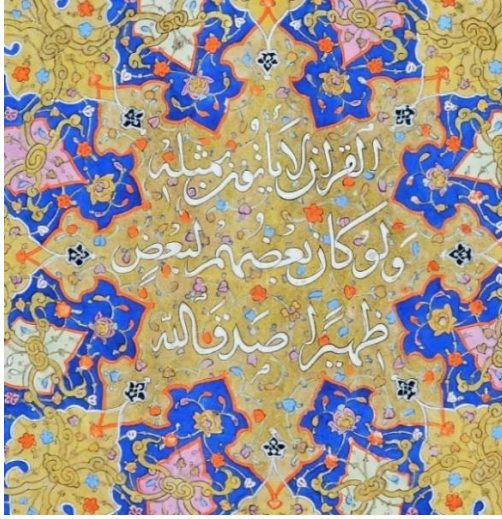 القرآن لا يأتون بمثله
ولو كان بعضهم لبعضٍ
ظهيرًا صدق الله